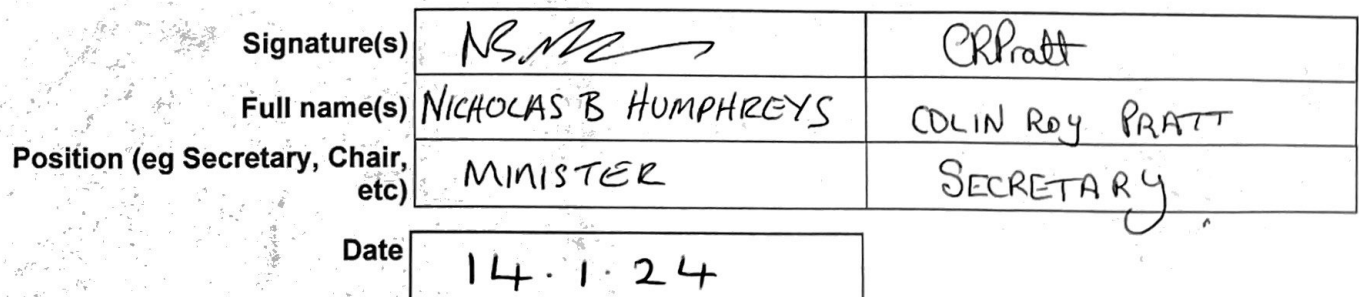 Signature(s) CRPratt
Full name(s) NICHOLAS B HUMPHREYS COLIN ROY PRATT
Position (eg Secretary, Chair,
etc) MINISTER SECRETARY
Date 14.1.24